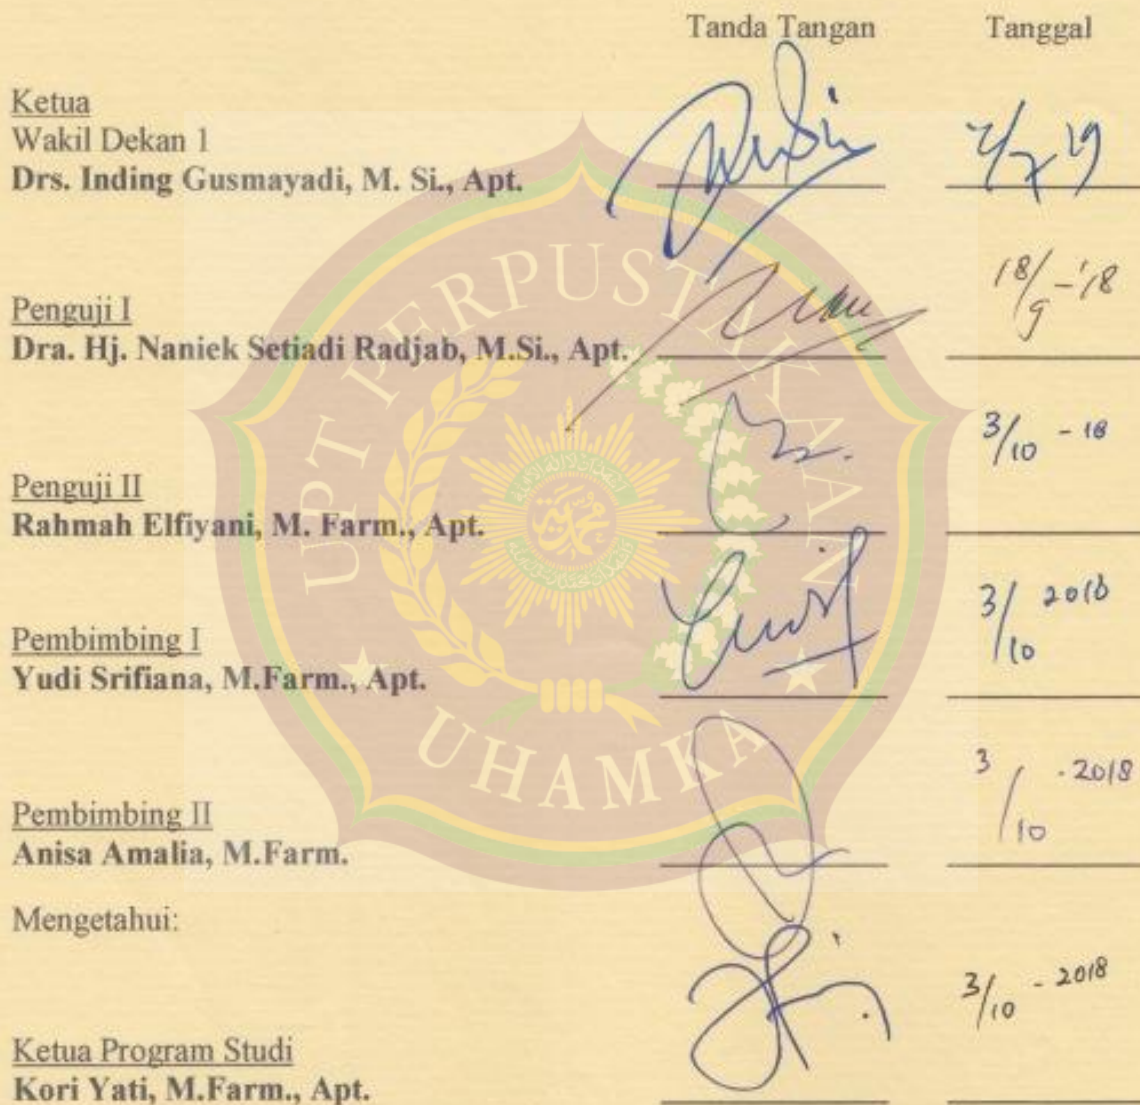 Tanda Tangan Tanggal
Ketua
Wakil Dekan 1
Drs. Inding Gusmayadi, M. Si., Apt. 2/7 19
Penguji I
Dra. Hj. Naniek Setiadi Radjab, M.Si., Apt. 18/9 - '18
Penguji II
Rahmah Elfiyani, M. Farm., Apt. 3/10 - 18
Pembimbing I
Yudi Srifiana, M.Farm., Apt. 3/10 2018
Pembimbing II
Anisa Amalia, M.Farm. 3/10 - 2018
Mengetahui:
Ketua Program Studi
Kori Yati, M.Farm., Apt. 3/10 - 2018
UPT PERPUSTAKAAN
UHAMKA